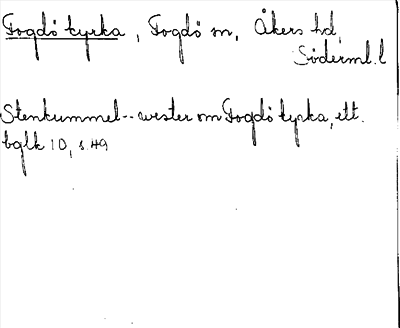 Fogdö kyrka, Fogdö sn, Åkers hd,
Söderml. l
Stenkummel-- wester om Fogdö kyrka, ett.
bglk 10, s. 49